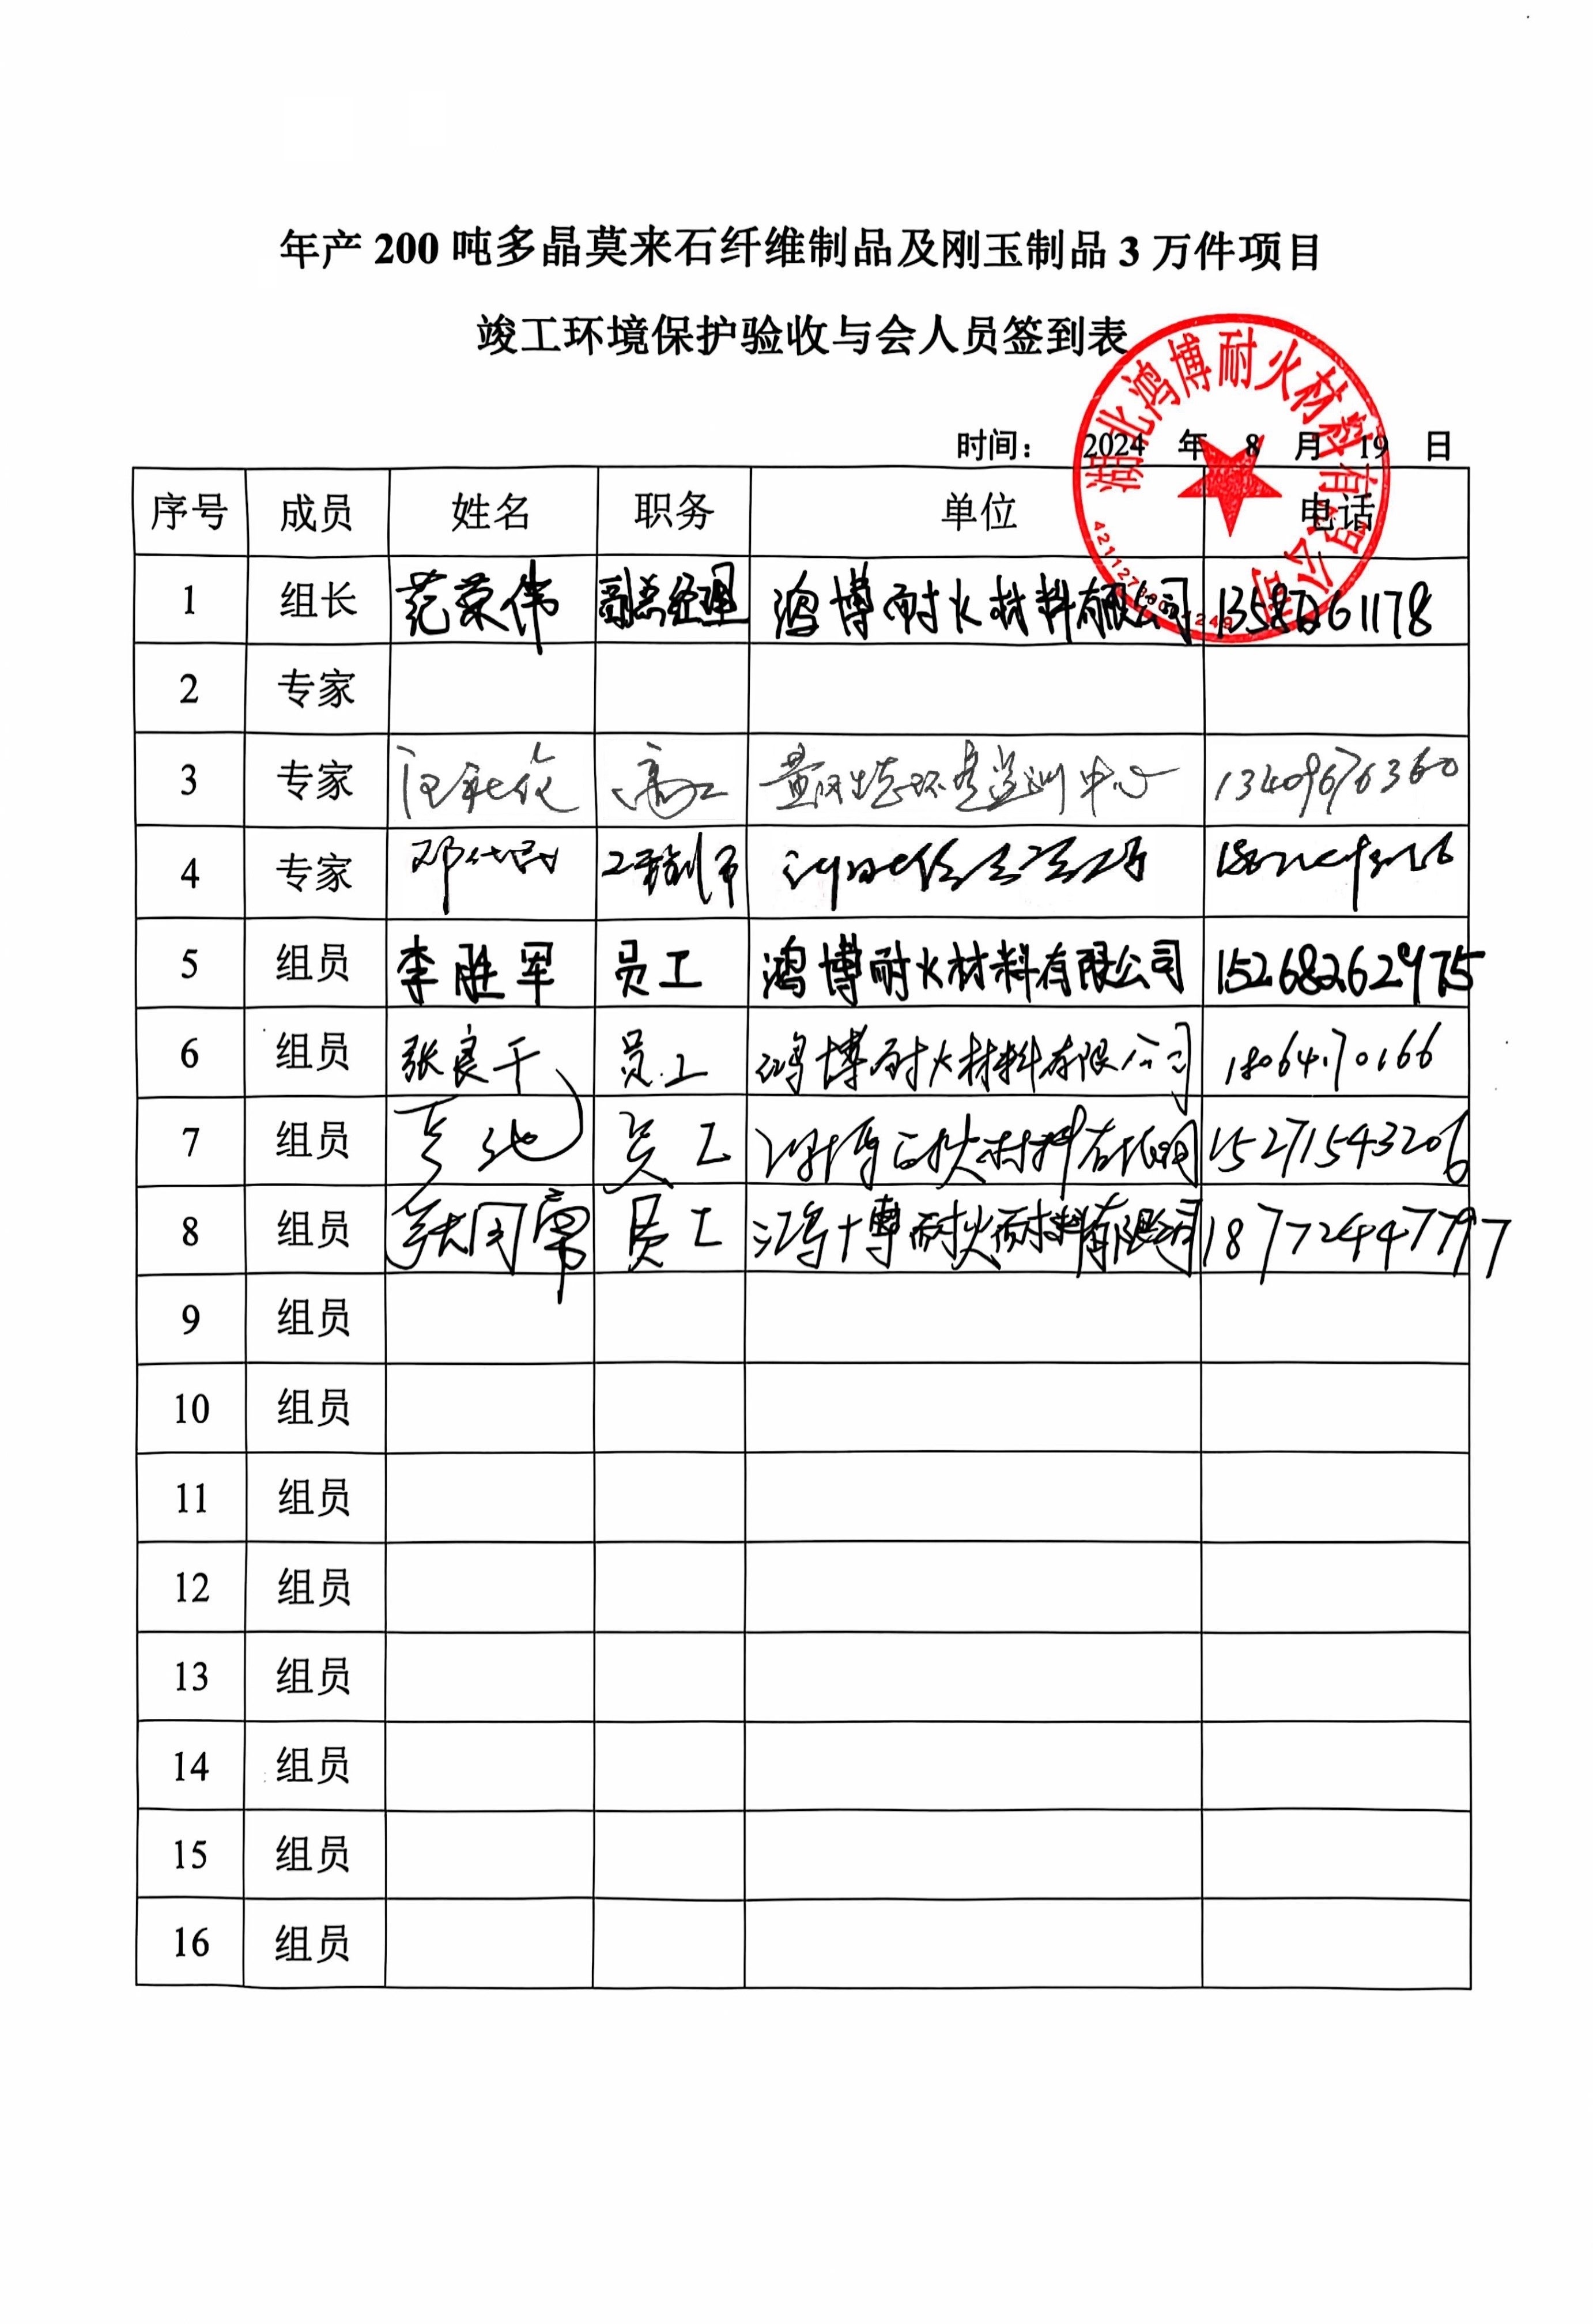 年产 200 吨多晶莫来石纤维制品及刚玉制品 3 万件项目
竣工环境保护验收与会人员签到表
湖北鸿博耐火材料有限公司
时间： 2024 年 8 月 19 日
序号 成员 姓名 职务 单位 电话
1 组长 范荣伟 副总经理 鸿博耐火材料有限公司
2 专家
3 专家 高工 监测中心 13409676360
4 专家 邓 工程师
5 组员 李胜军 员工 鸿博耐火材料有限公司 15268262975
6 组员 张良千 员工 鸿博耐火材料有限公司
7 组员 员工 鸿博耐火材料有限公司 15271543206
8 组员 张国 员工 鸿博耐火耐材料有限公司 18772447797
9 组员
10 组员
11 组员
12 组员
13 组员
14 组员
15 组员
16 组员